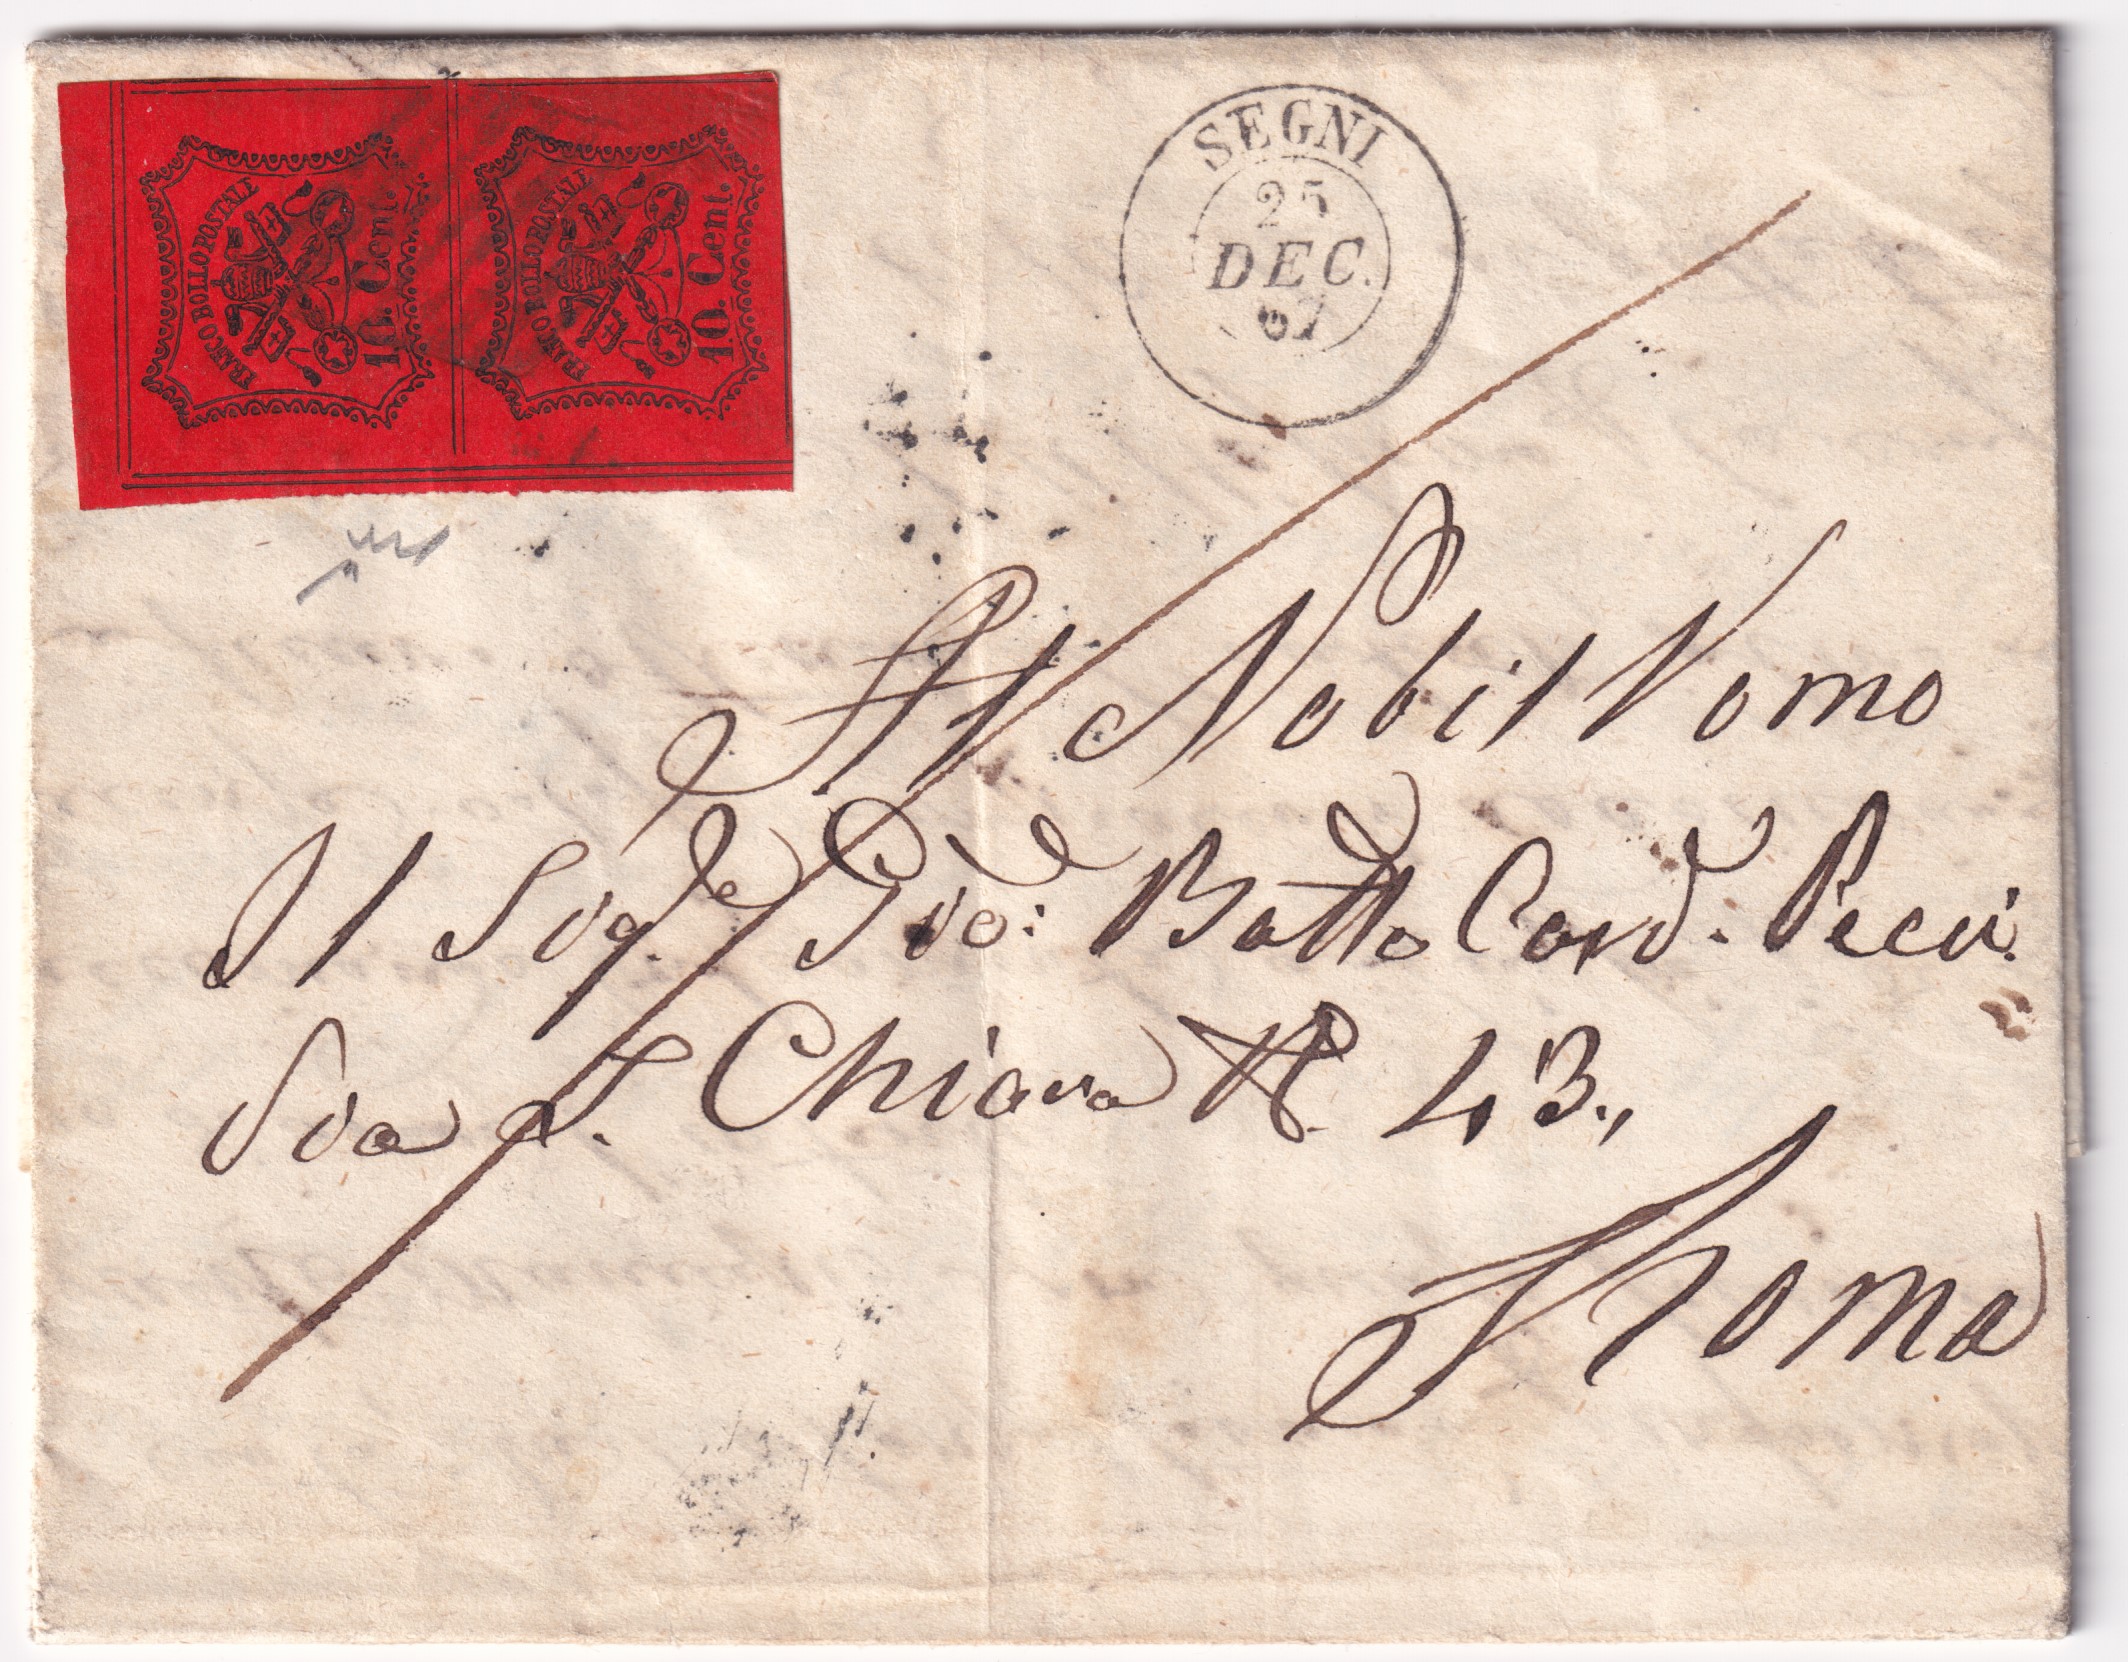 FRANCO BOLLO POSTALE
10. Cent.
FRANCO BOLLO POSTALE
10. Cent.
SEGNI
25
DEC.
67
Al Nobil Vomo
Il Sigre Gio: Batta Card. Pecci
Via S. Chiara N. 43.,
Roma